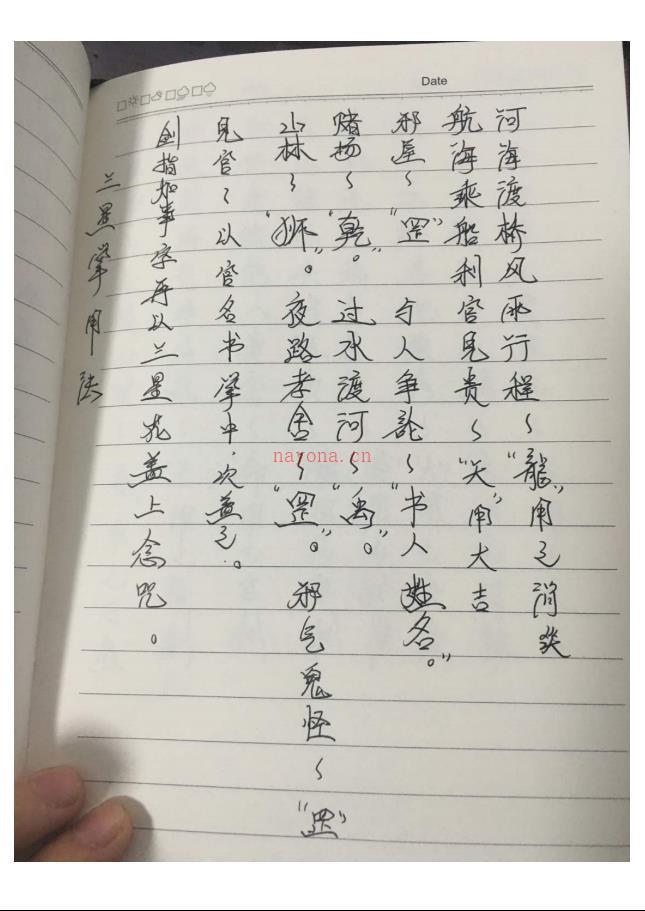 Date
河海渡桥风雨行程～“龍”用之消災
航海乘船利官見贵～“天”用大吉
邪巫～“罡”与人争論～“书人姓名。”
赌场～“乾”。过水渡河～“禹”。
山林～“狮”。夜路孝舍～“罡”。邪气鬼怪～“罡”
見官～以官名书掌中，次盖之。
剑指加事字再以三星花盖上念咒。
三星掌用法
nayona.cn